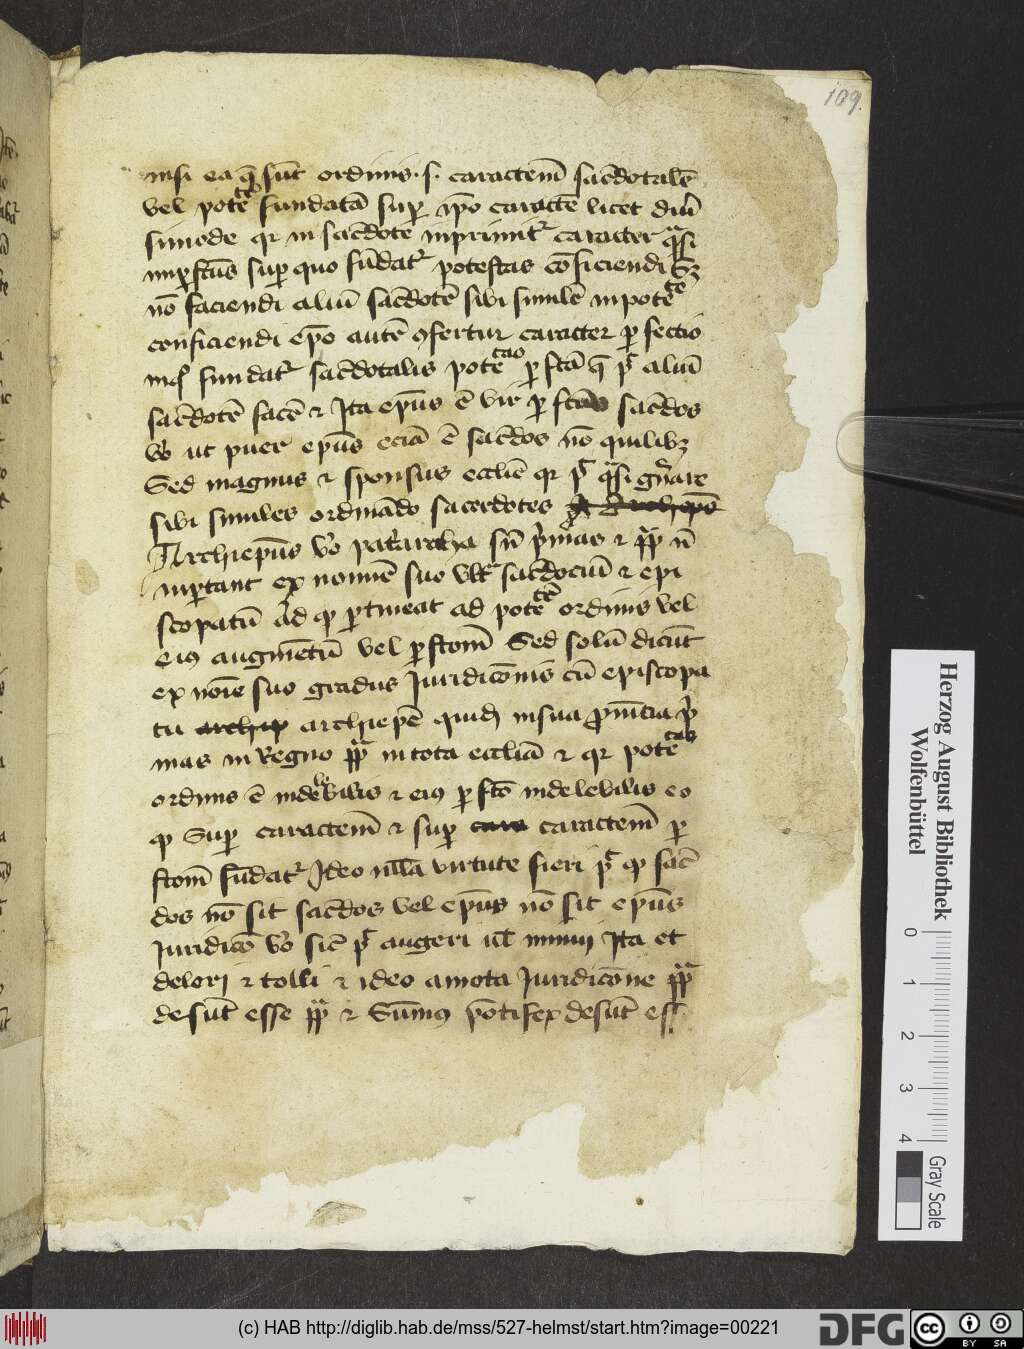 109.
nisi ea q̄ sūt ordinis .s. caracterē sac̄dotalē
vel potētē fundatā sup ip̄o caractē licet diu
simode qr in sac̄dote inprimit͛ caracter q̄si
inp̱fctūs sup quo fūdat͛ potestas cōficiendi sꝫ
nō faciendi aliū sac̄dotē sibi similē in potētē
conficiendi ep̄o autē ꝯfertur caracter p̱fectio
in q fundat͛ sac̄dotalis potē p̱fctā q̄ pt̄ aliū
sac̄dotē facē ⁊ Ita ep̄us ē vir p̱fctus sac̄dos
v̊o ut puer ep̄us eciā ē sac̄dos nō quilibꝫ
Sed magnus ⁊ sponsus eccliē qr pt̄ q̄si gn̄are
sibi similes ordinādo sacerdotes
Archiep̄us v̊o patriarcha sū p̄mas ⁊ pp̄ nō
inp̱tant ex nomine suo vlt͛ sac̄dociū ⁊ epi
scopatū Ad qp p̱tineat ad potētē ordinis vel
eiꝯ augmētū vel p̱fctōm Sed solū dicūt
ex noīe suo gradus Iuridicōnis cū episcopa
tu archip archiep̄c quidē in sua ꝓuīcia p̄
mas in Regno pp̄ in tota eccliā ⁊ qr potētas
ordinis ē indelebilis ⁊ eiꝯ p̱fctō indelebilis eo
qp Sup caracterē ⁊ sup cara caracterē p̱
fctōm fūdat͛ Ideo nlla virtute fieri pt̄ qp sac̄
dos nō sit sac̄dos vel ep̄us nō sit ep̄us
Iuridicō v̊o sic̄ pt̄ augeri ul̄ minui Ita et
deleri ⁊ tolli ⁊ ideo amota Iuridicōne pp̄
desūt esse pp̄ ⁊ Sūmꝯ pōtifex desūt ess
Herzog August Bibliothek
Wolfenbüttel
0 1 2 3 4
Gray Scale
(c) HAB http://diglib.hab.de/mss/527-helmst/start.htm?image=00221
DFG
cc BY SA